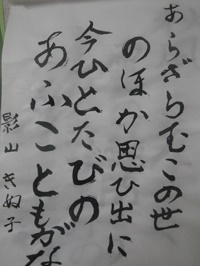 あらざらむこの世
のほか思ひ出に
今ひとたびの
あふこともがな
影山きぬ子